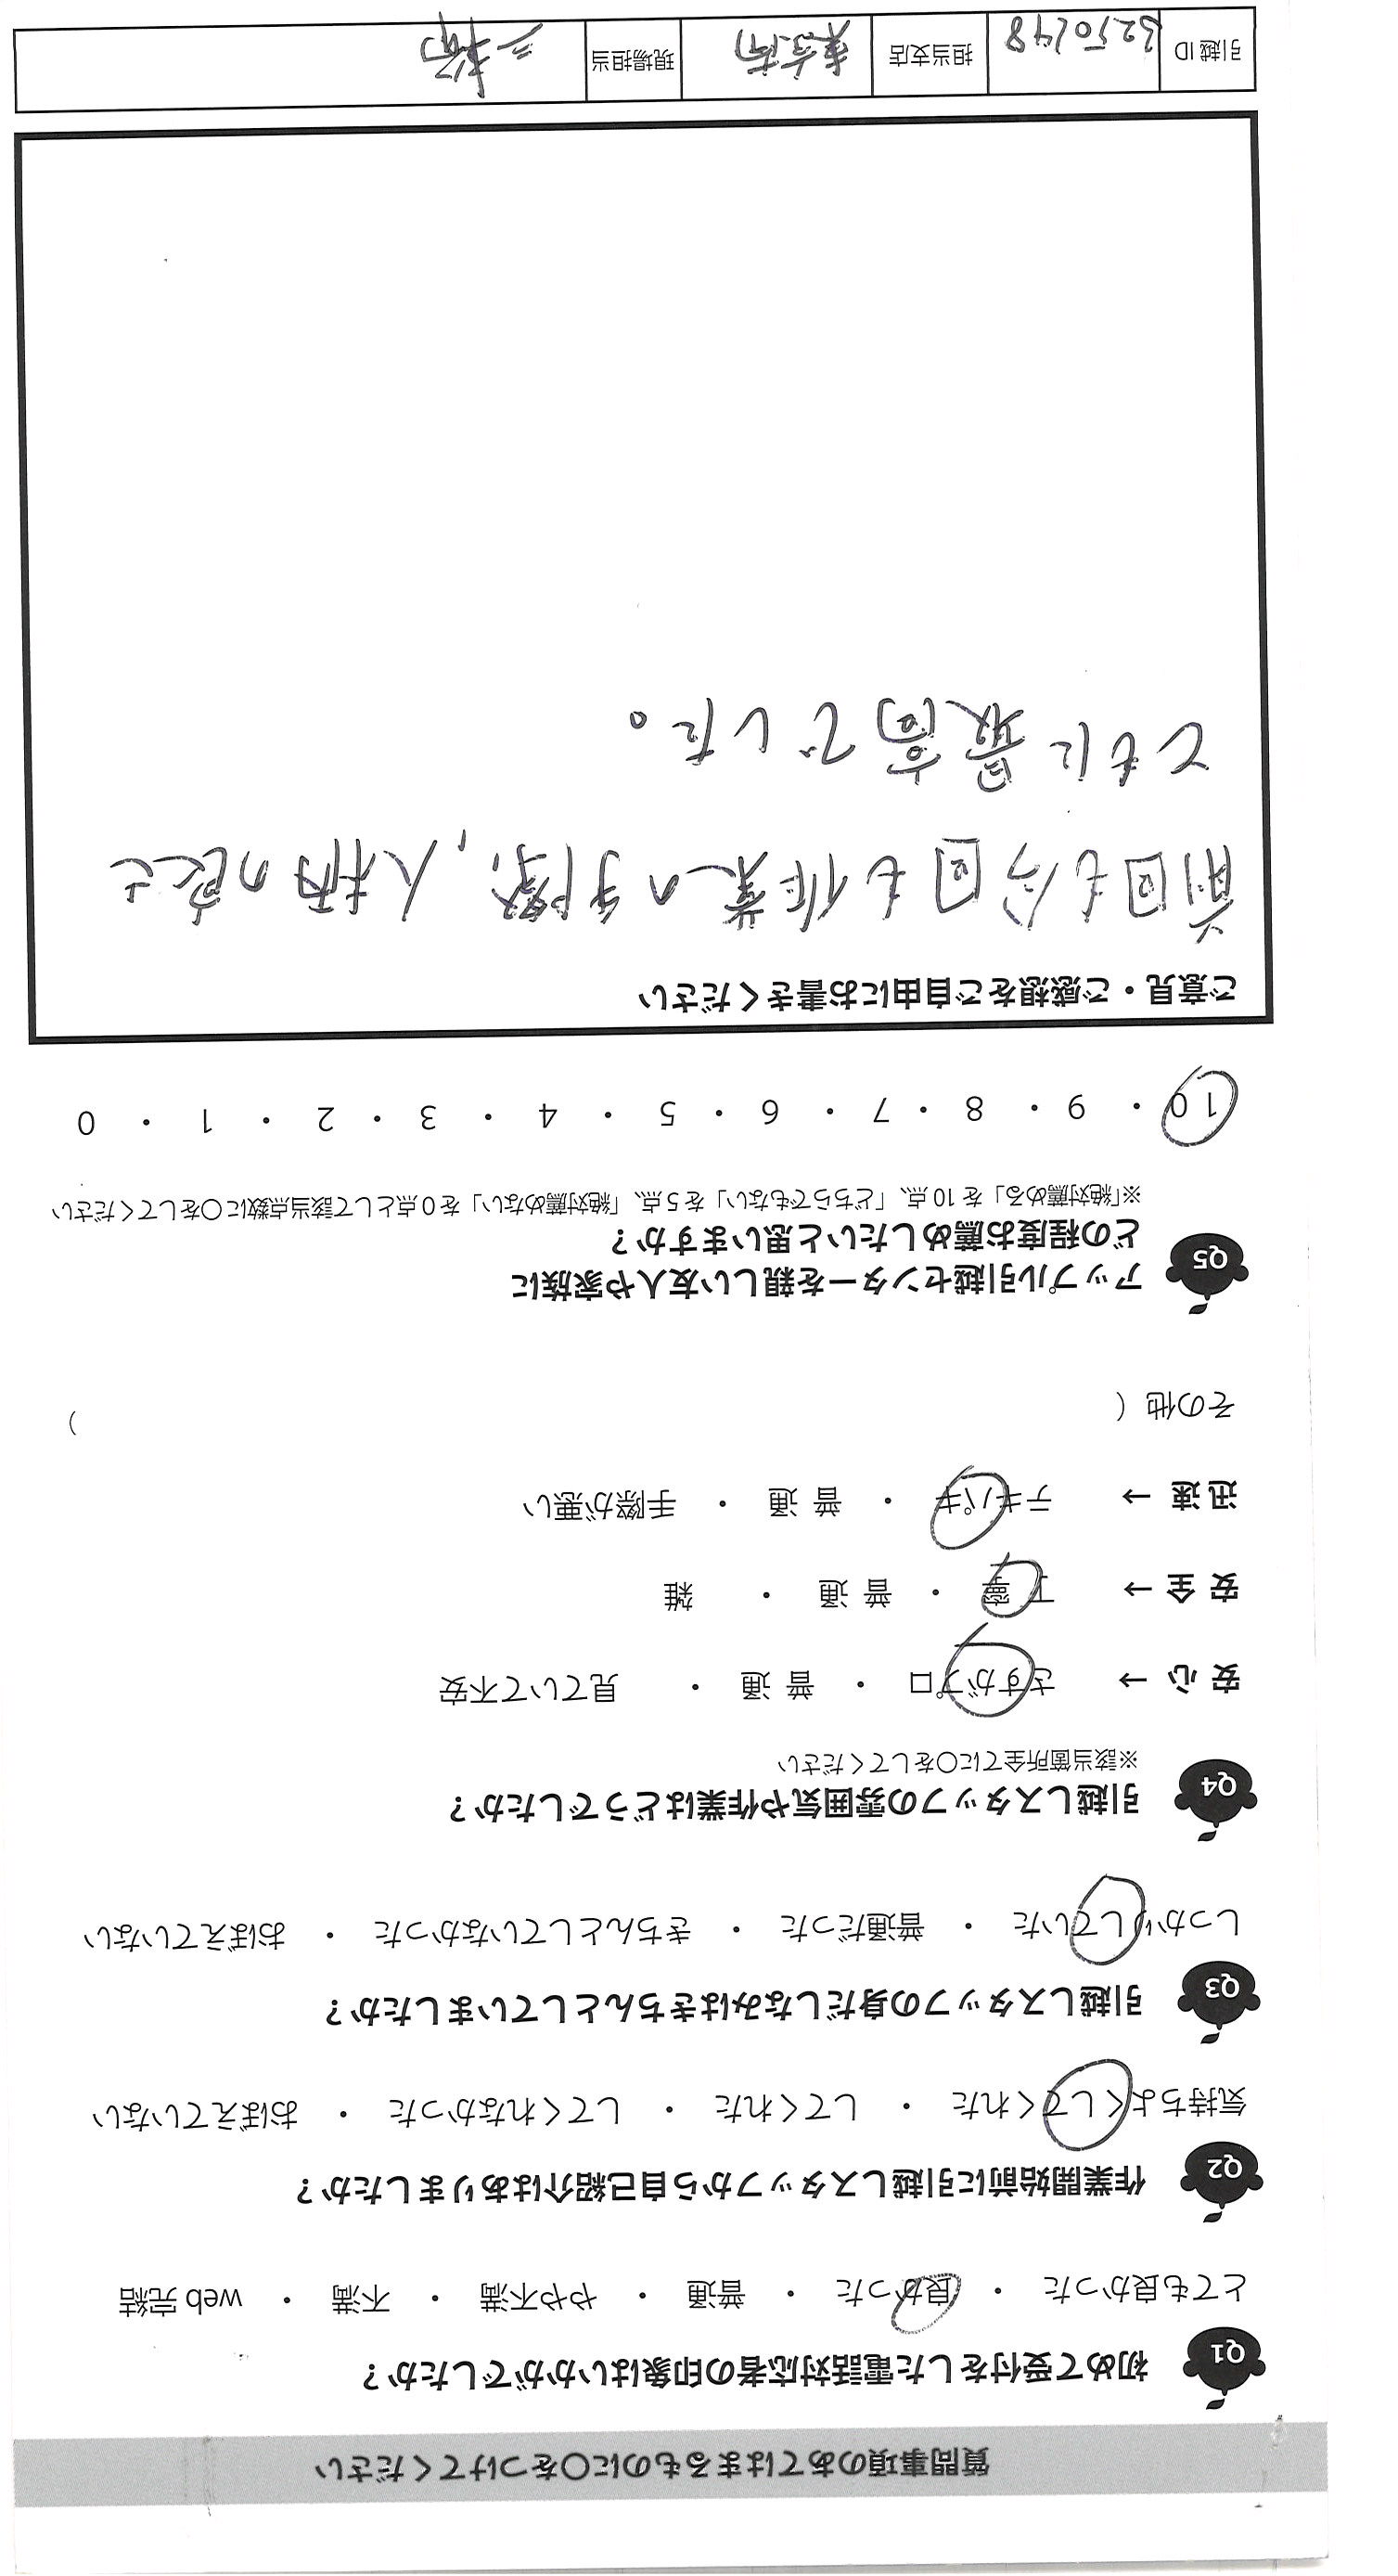 質問事項のあてはまるものに○をつけてください
Q1 初めて受付をした電話対応者の印象はいかがでしたか？
とても良かった ・ 良かった ・ 普通 ・ やや不満 ・ 不満 ・ web 完結
Q2 作業開始前に引越しスタッフから自己紹介はありましたか？
気持ちよくしてくれた ・ してくれた ・ してくれなかった ・ おぼえていない
Q3 引越しスタッフの身だしなみはきちんとしていましたか？
しっかりしていた ・ 普通だった ・ きちんとしていなかった ・ おぼえていない
Q4 引越しスタッフの雰囲気や作業はどうでしたか？
※該当箇所全てに○をしてください
安 心 → さすがプロ ・ 普 通 ・ 見ていて不安
安 全 → 丁 寧 ・ 普 通 ・ 雑
迅 速 → テキパキ ・ 普 通 ・ 手際が悪い
その他（ ）
Q5 アップル引越センターを親しい友人や家族に
どの程度お薦めしたいと思いますか？
※「絶対薦める」を 10 点、「どちらでもない」を 5 点、「絶対薦めない」を 0 点として該当点数に○をしてください
10 ・ 9 ・ 8 ・ 7 ・ 6 ・ 5 ・ 4 ・ 3 ・ 2 ・ 1 ・ 0
ご意見・ご感想をご自由にお書きください
前回も今回も作業の手際、人柄の良さ
ともに最高でした。
引越 ID 3250148 担当支店 東京南 現場担当